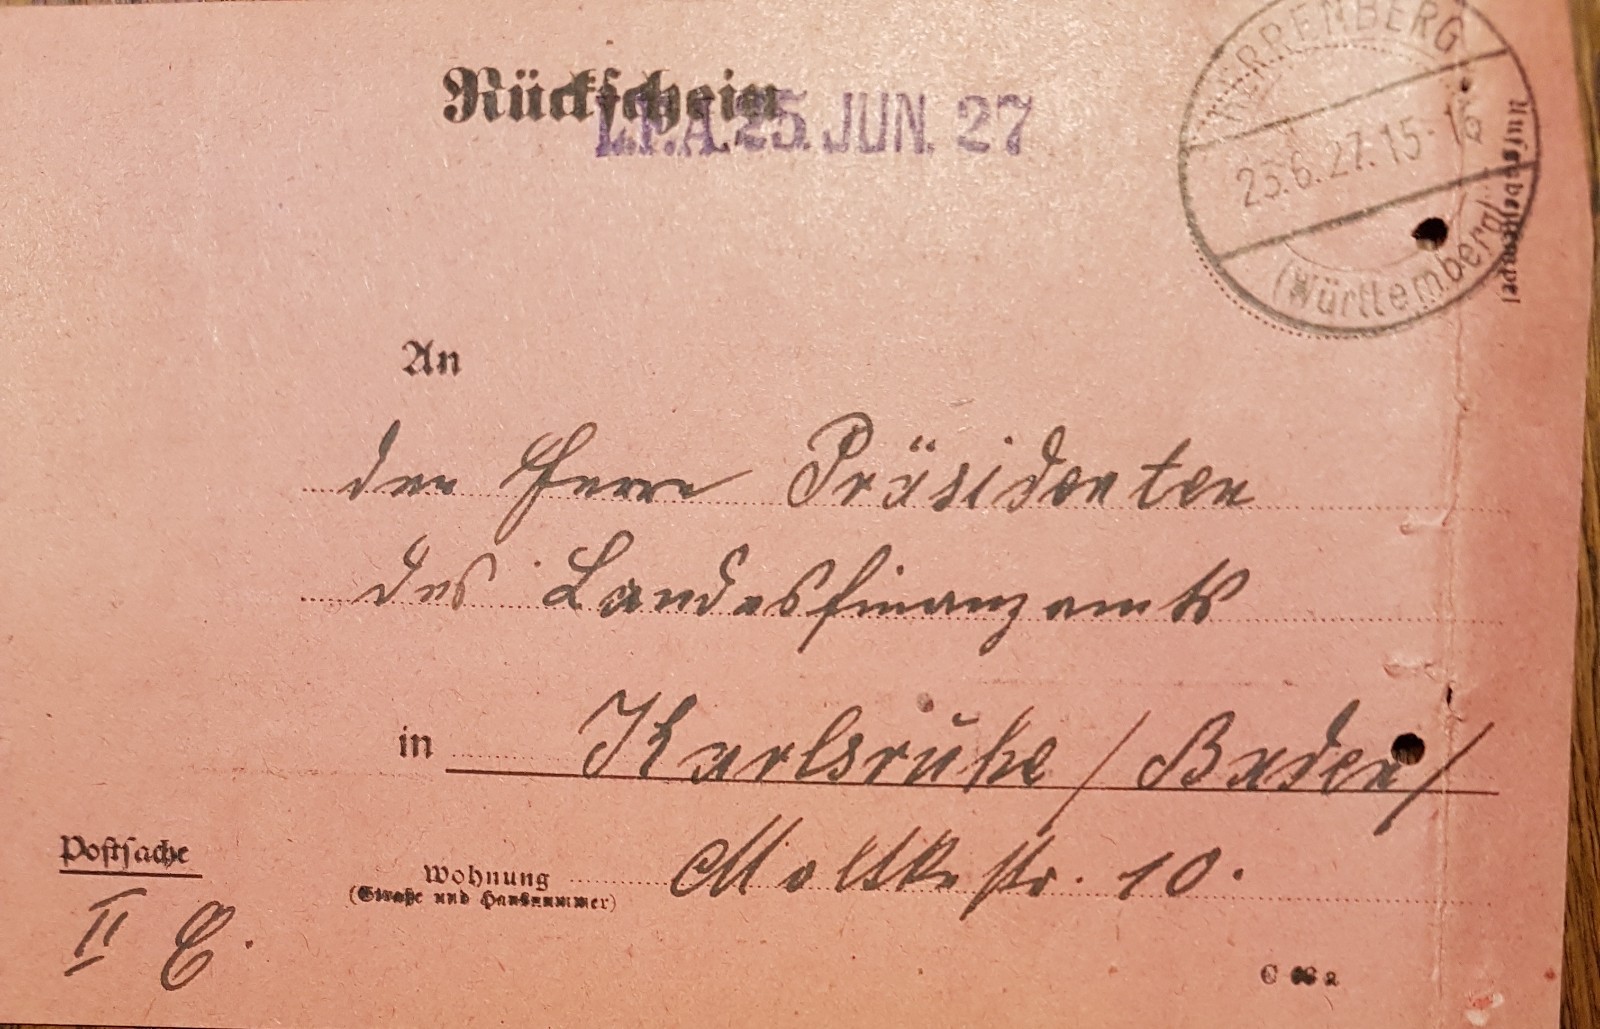 Rückschein
L.F.A. 25. JUN. 27
HERRENBERG
23.6.27.15-16
(Württemberg)
Aufgabestempel
An
den Herrn Präsidenten
des Landesfinanzamts
in Karlsruhe /Baden/
Postsache
Wohnung Moltkestr. 10.
(Straße und Hausnummer)
II
C